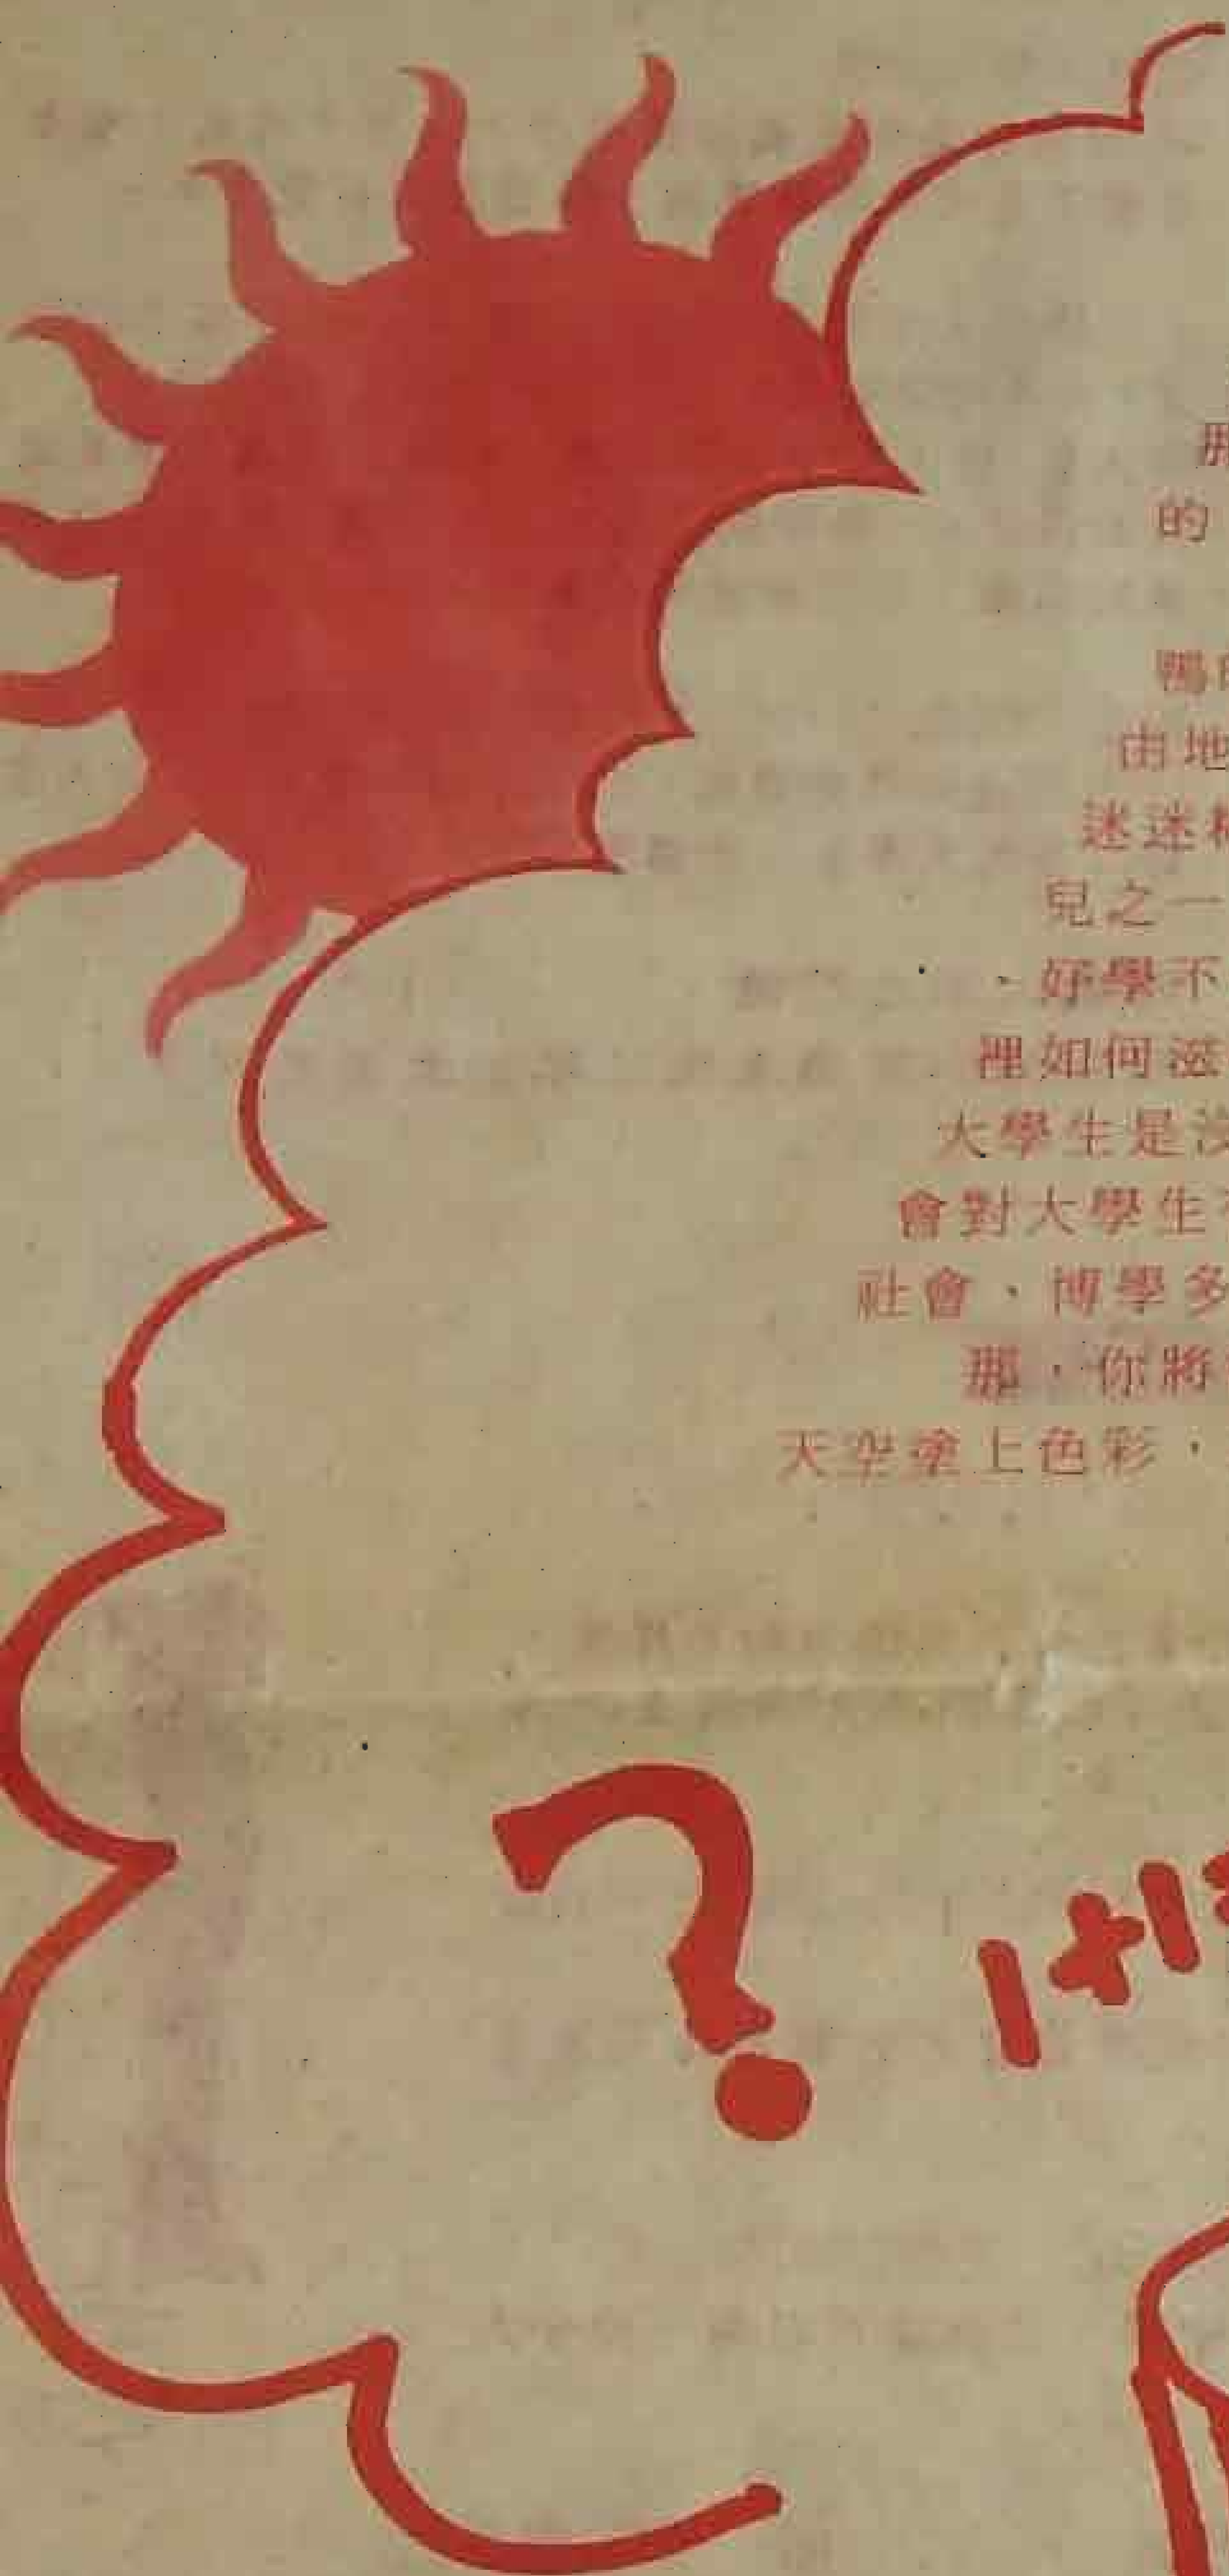 的
鴨
由地
迷迷
兒之一
好學不
裡如何滋
大學生是沒
會對大學生
社會、博學多
那,你將
天空塗上色彩,
?
1+1